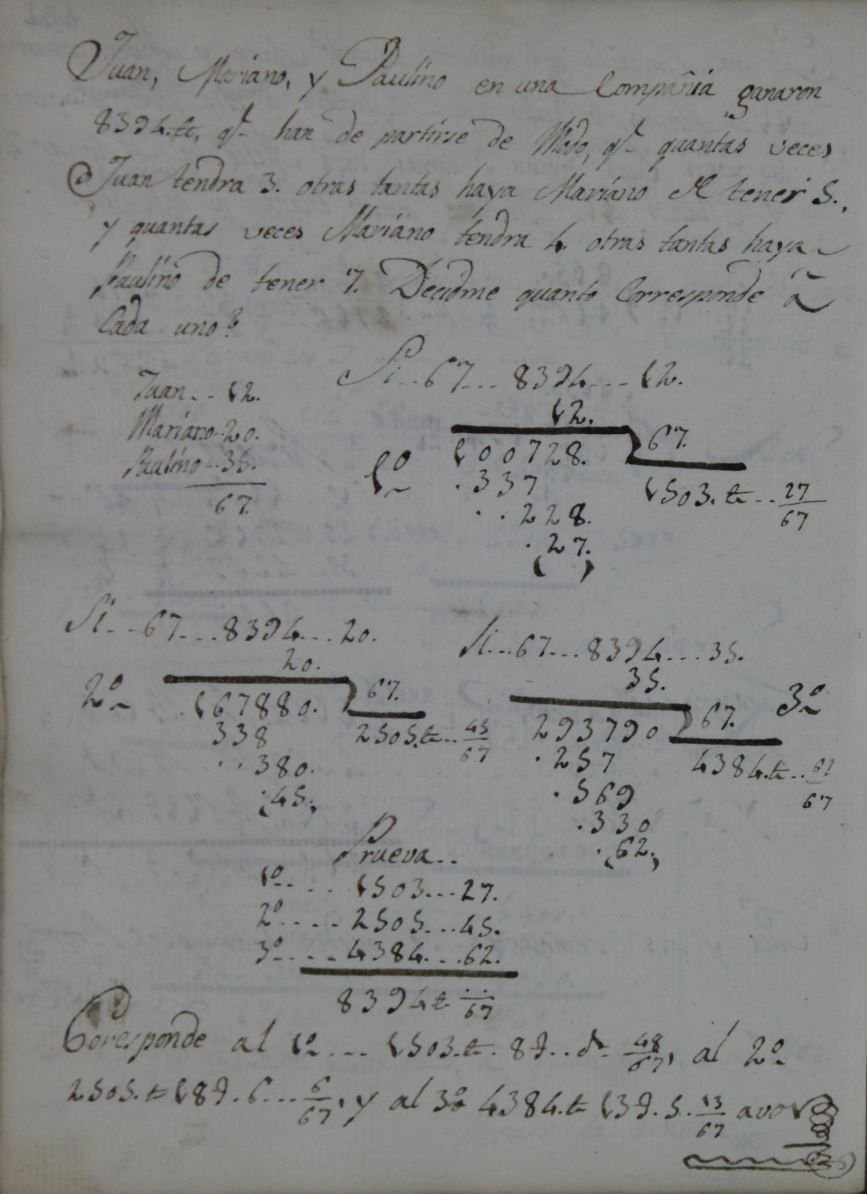 Juan, Mariano, y Paulino en una Compañia ganaron
8394.tt, qe. han de partirse de Modo, qe. quantas veces
Juan tendra 3. otras tantas haya Mariano de tener 5.,
y quantas veces Mariano tendra 4. otras tantas haya
Paulino de tener 7. Decidme quanto Corresponde à
Cada uno?
Juan.. 12.
Mariano.20.
Paulino..35.
67.
Si..67...8394...12.
12.
1º 100728. 67.
.337 1503.tt..27/67
..228.
.27.
Si..67...8394...20.
20.
2º 167880. 67.
338 2505.tt..45/67
..380.
.45.
Si..67...8394...35.
35.
293790 67. 3º
.257 4384.tt..62/67
.569
.330
.62.
Prueva..
1º.....1503...27.
2º.....2505...45.
3º.....4384...62.
8394tt ../67
Coresponde al 1º....1503.tt. 8 48/67, al 2º
2505.tt 18 .6...6/67, y al 3º 4384.tt 13 .5. 13/67 avos